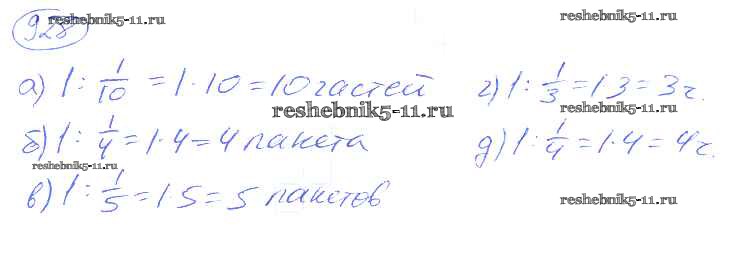 928 reshebnik5-11.ru reshebnik5-11.ru
а) 1 : 1/10 = 1 · 10 = 10 частей г) 1 : 1/3 = 1 3 = 3 ч.
reshebnik5-11.ru reshebnik5-11.ru
б) 1 : 1/4 = 1 · 4 = 4 пакета д) 1 : 1/4 = 1 · 4 = 4 ч.
reshebnik5-11.ru
в) 1 : 1/5 = 1 · 5 = 5 пакетов reshebnik5-11.ru